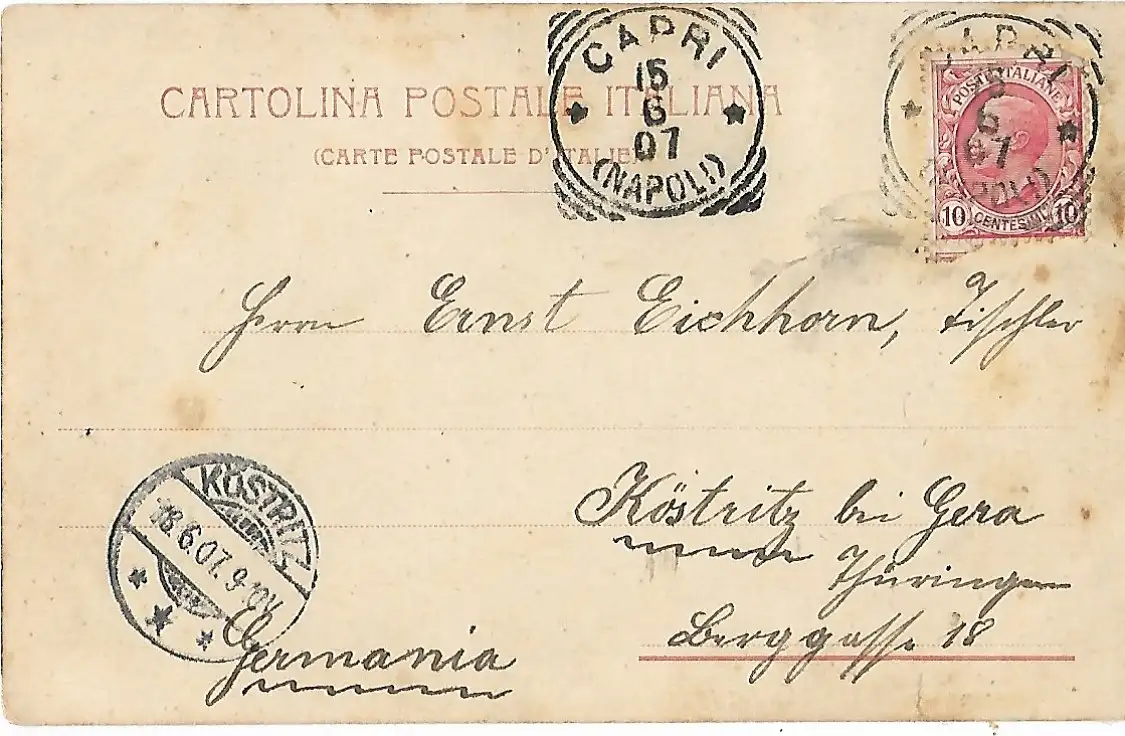 CARTOLINA POSTALE ITALIANA
(CARTE POSTALE D'ITALIE)
CAPRI
15
6
07
(NAPOLI)
CAPRI
15
6
07
(NAPOLI)
POSTE ITALIANE
10 CENTESIMI 10
Herrn Ernst Eichhorn, Tischler
Köstritz bei Gera
Thüringen
Berggasse 18
Germania
KÖSTRITZ
18.6.07. 9-10V